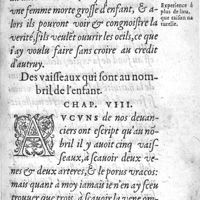 vne femme morte grosse d'enfant, & a-
lors ils pourront voir & congnoistre la
verité, s'ils veulēt ouurir les oeils, ce que
i'ay voulu faire sans croire au credit
d'autruy.
Experience à
plus de lieu,
que raison na
turelle.
Des vaisseaux qui sont au nom-
bril de l'enfant.
CHAP. VIII.
AVCVNS de nos deuan-
ciers ont escript qu'au no-
bril il y auoit cinq vais-
seaux, à scauoir deux ve-
nes & deux arteres, & le porus vracos:
mais quant à moy iamais ie n'en ay sceu
trouuer que trois, à scauoir la vene om-